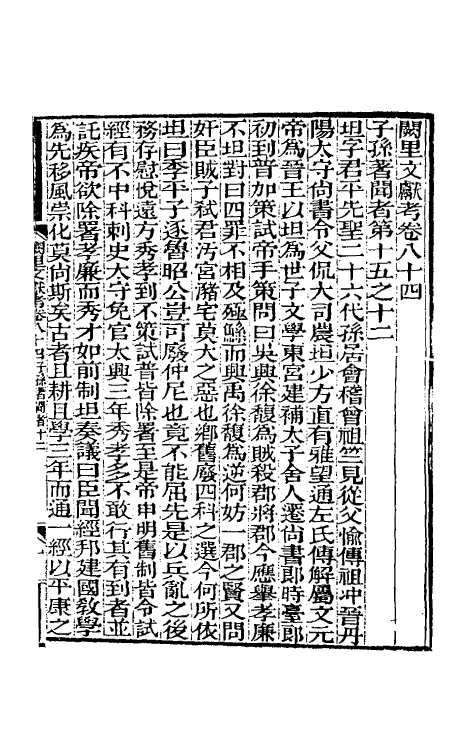 闕里文獻考卷八十四
子孫著聞者第十五之十二
坦字君平先聖二十六代孫居會稽曾祖竺見從父愉傳祖沖晉丹
陽太守尚書令父侃大司農坦少方直有雅望通左氏傳解屬文元
帝為晉王以坦為世子文學東宮建補太子舍人遷尚書郎時臺郎
初到普加策試帝手策問曰吳興徐馥為賊殺郡將郡今應舉孝廉
不坦對曰四罪不相及殛鯀而興禹徐馥為逆何妨一郡之賢又問
奸臣賊子弒君汚宮瀦宅莫大之惡也鄉舊廢四科之選今何所依
坦曰季平子逐魯昭公豈可廢仲尼也竟不能屈先是以兵亂之後
務存慰悅遠方秀孝到不策試普皆除署至是帝申明舊制皆令試
經有不中科刺史太守免官太興三年秀孝多不敢行其有到者並
託疾帝欲除署孝廉而秀才如前制坦奏議曰臣聞經邦建國敎學
為先移風崇化莫尚斯矣古者且耕且學三年而通一經以平康之
闕里文獻考卷八十四 子孫著聞者十二
一